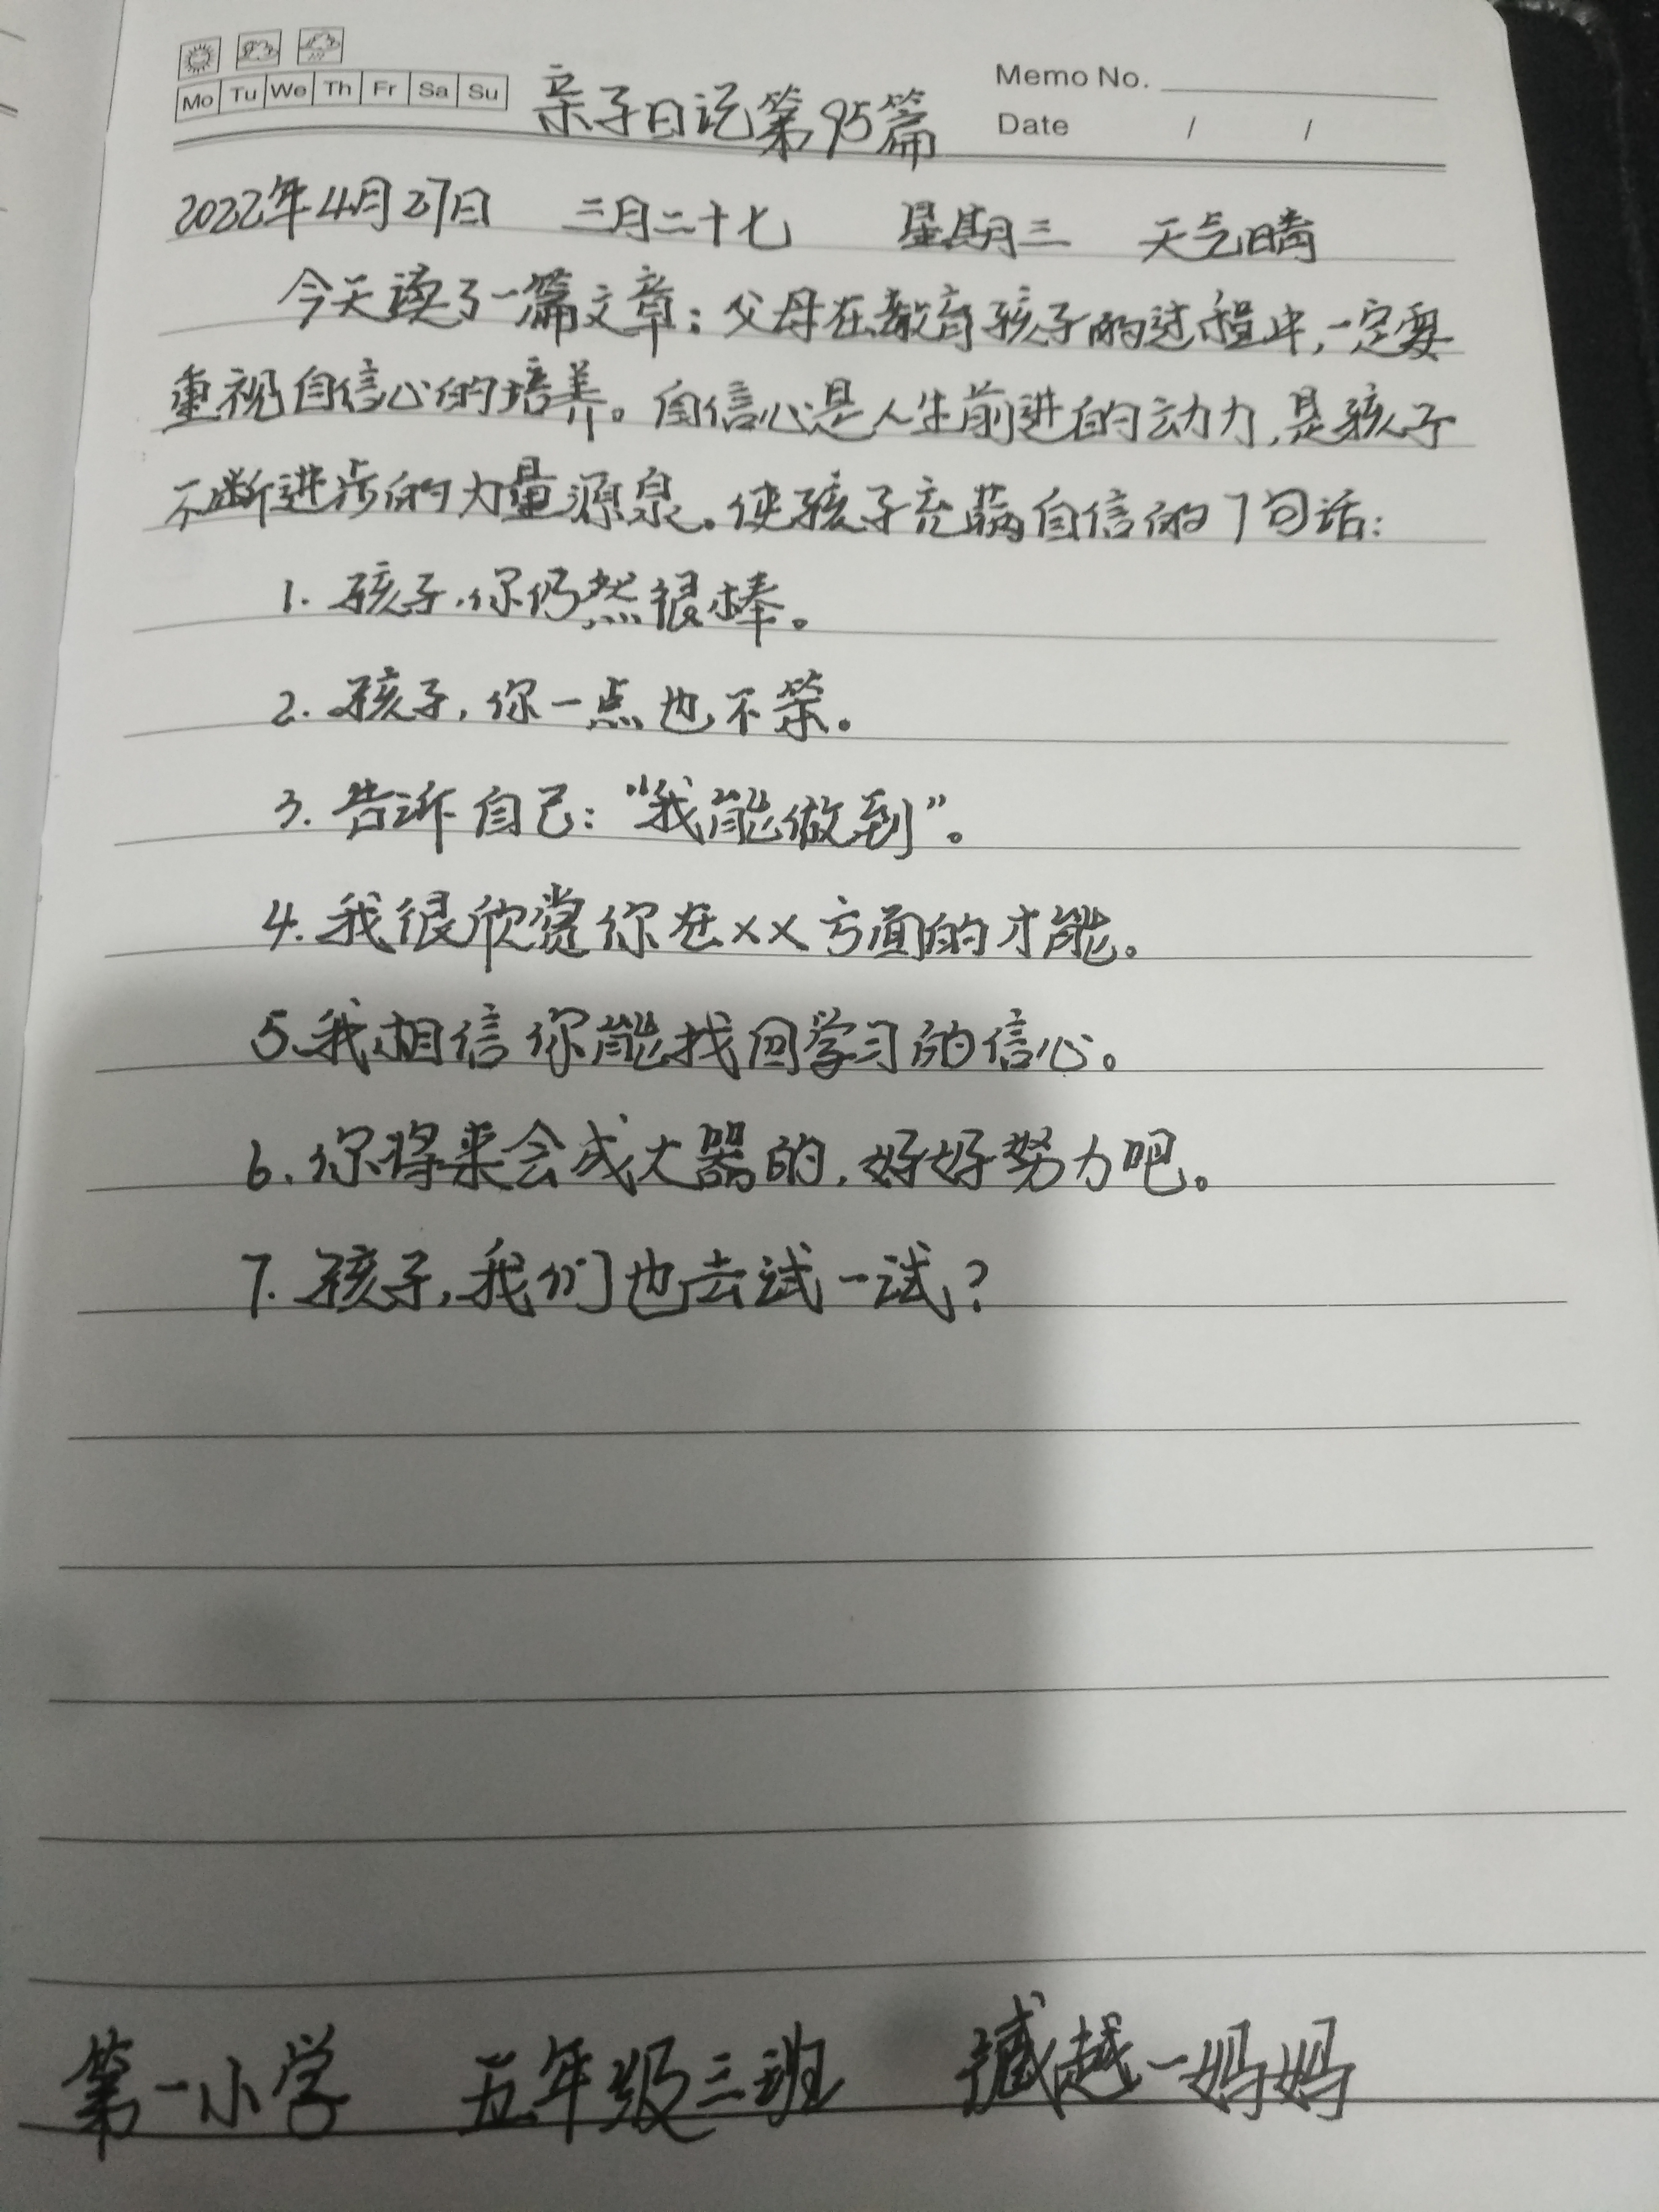 Mo Tu We Th Fr Sa Su
亲子日记第95篇
Memo No.
Date / /
2022年4月27日 三月二十七 星期三 天气晴
今天读了一篇文章：父母在教育孩子的过程中，一定要
重视自信心的培养。自信心是人生前进的动力，是孩子
不断进步的力量源泉。使孩子充满自信的7句话：
1. 孩子，你仍然很棒。
2. 孩子，你一点也不笨。
3. 告诉自己：“我能做到”。
4. 我很欣赏你在××方面的才能。
5. 我相信你能找回学习的信心。
6. 你将来会成大器的，好好努力吧。
7. 孩子，我们也去试一试？
第一小学 五年级三班 越一妈妈